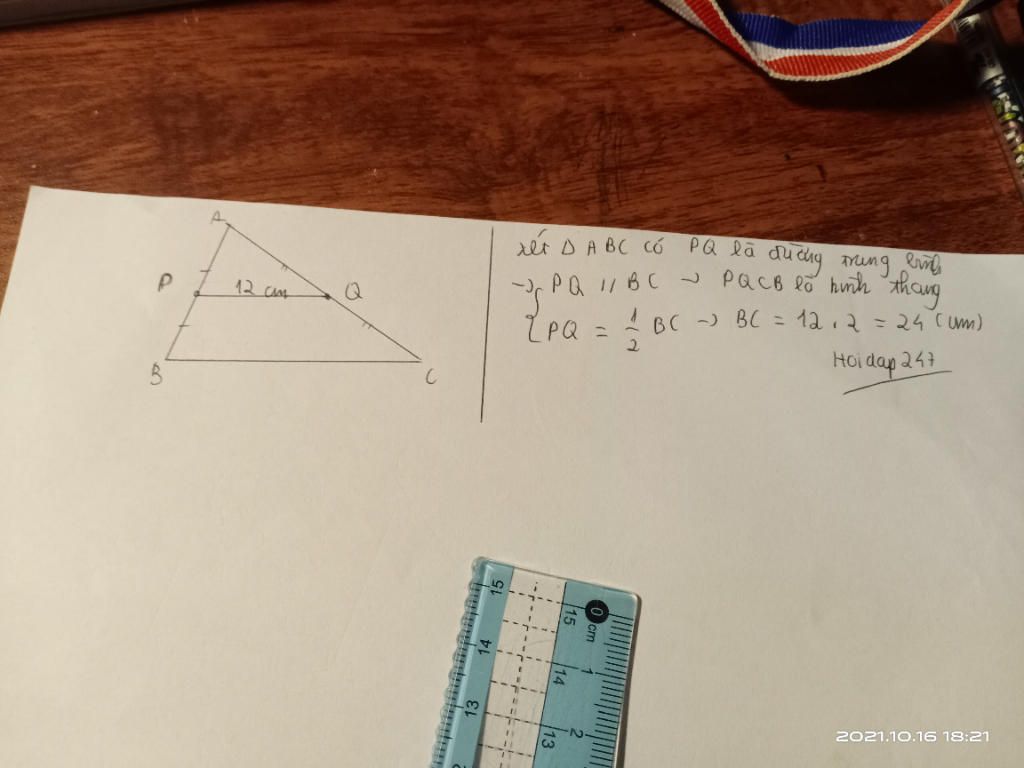 A
P
12 cm
Q
B
C
xét Δ ABC có PQ là đường trung bình
→ PQ // BC → PQCB là hình thang
PQ = 1/2 BC → BC = 12 . 2 = 24 (cm)
Hoidap247
15
0 cm
15
14
1
14
13
2
13
2021.10.16 18:21